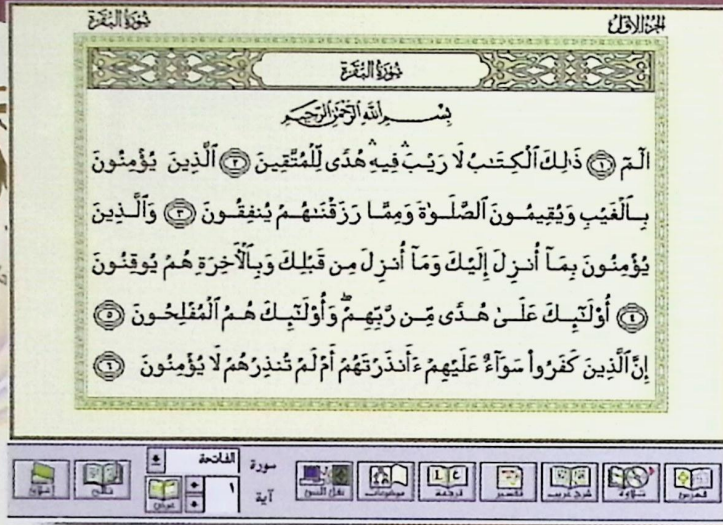 الجزء الأول
سورة البقرة
سورة البقرة
بِسْمِ اللَّهِ الرَّحْمَٰنِ الرَّحِيمِ
الٓمٓ ١ ذَٰلِكَ ٱلْكِتَٰبُ لَا رَيْبَۛ فِيهِۛ هُدًى لِّلْمُتَّقِينَ ٢ ٱلَّذِينَ يُؤْمِنُونَ
بِٱلْغَيْبِ وَيُقِيمُونَ ٱلصَّلَوٰةَ وَمِمَّا رَزَقْنَٰهُمْ يُنفِقُونَ ٣ وَٱلَّذِينَ
يُؤْمِنُونَ بِمَآ أُنزِلَ إِلَيْكَ وَمَآ أُنزِلَ مِن قَبْلِكَ وَبِٱلْأَخِرَةِ هُمْ يُوقِنُونَ
٤ أُوْلَٰٓئِكَ عَلَىٰ هُدًى مِّن رَّبِّهِمْۖ وَأُوْلَٰٓئِكَ هُمُ ٱلْمُفْلِحُونَ ٥
إِنَّ ٱلَّذِينَ كَفَرُوا۟ سَوَآءٌ عَلَيْهِمْ ءَأَنذَرْتَهُمْ أَمْ لَمْ تُنذِرْهُمْ لَا يُؤْمِنُونَ ٦
سورة الفاتحة
آية ١
فهرس تلاوة شرح غريب تفسير ترجمة موضوعات نقل النص عرض